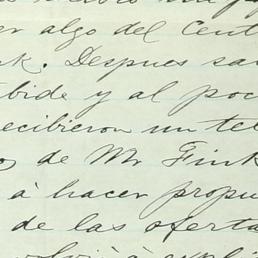 er algo del Cent
nk. Despues sa
bide y al poc
ecibieron un te
o de Mr Fink
á hacer propu
de las oferta